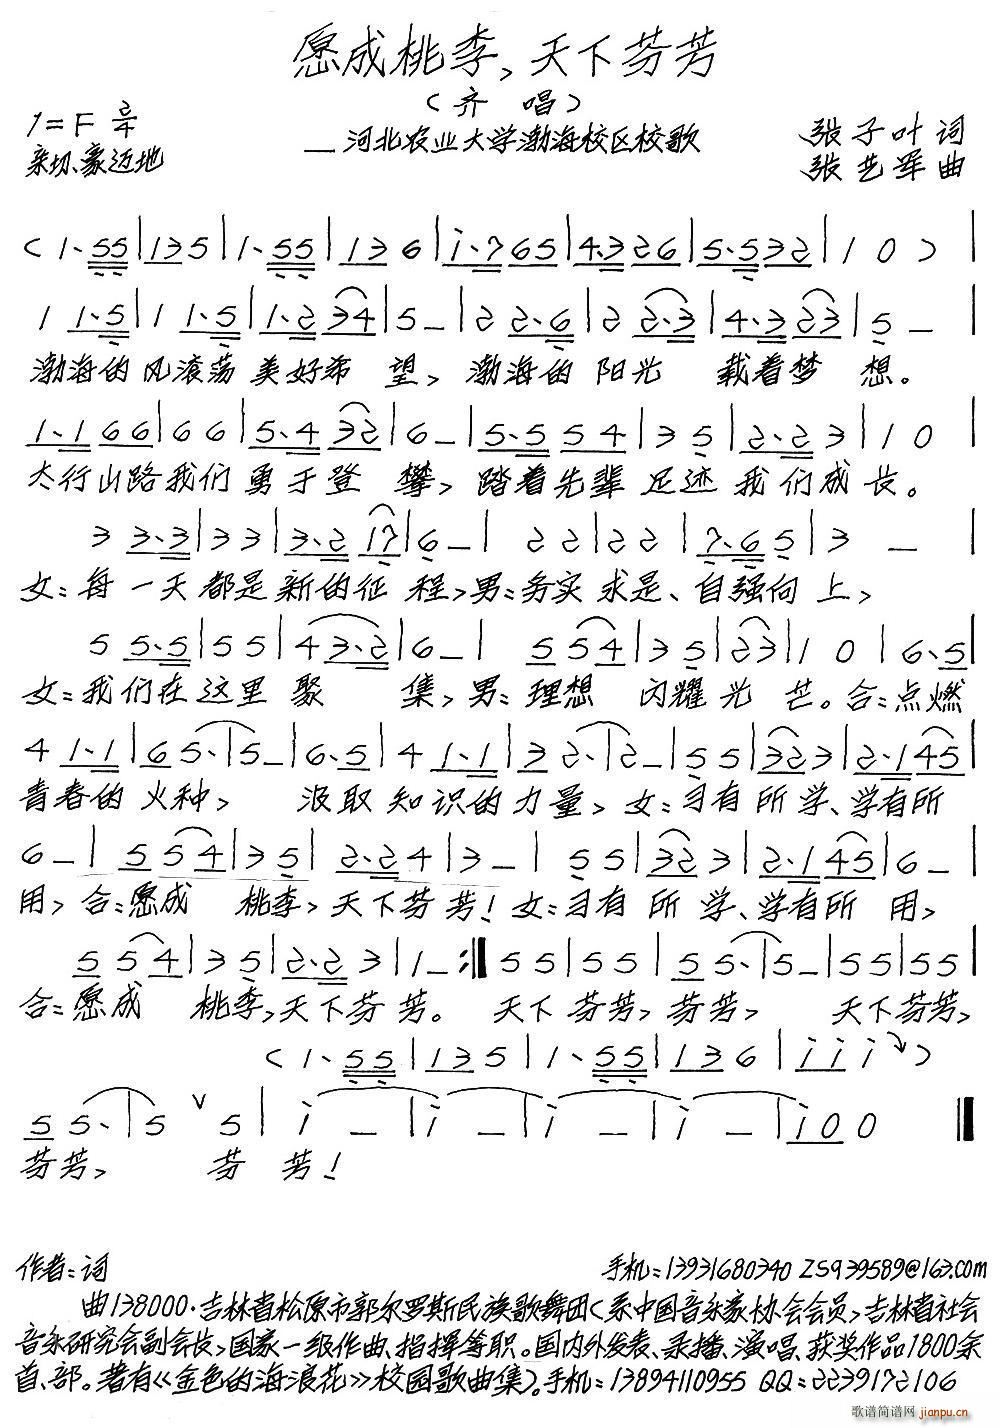 愿成桃李,天下芬芳
(齐 唱)
1=F 2/4
—河北农业大学渤海校区校歌
张子叶 词
亲切、豪迈地
张艺军 曲
(1·55|135|1·55|136|i·765|4·326|5·532|10)|
1 1·5|1 1·5|1·2 34|5–|2 2·6|2 2·3|4·3 23|5–|
渤海的风滚荡美好希 望, 渤海的 阳光 载着梦 想。
1·1 66|66|5·4 32|6–|5·5 54|35|2·23|10|
太行山路我们 勇于登 攀, 踏着先辈 足迹 我们成长。
3 3·3|33|3·2 17|6–| 22|22|7·65|3 –|
女:每 一天都是新的征 程,男:务实 求是、自强向 上,
5 5·5|55|4 3·2|6–| 554|35|23|10|6·5|
女:我们在这里 聚 集,男:理想 闪耀光 芒。合:点燃
4 1·1|65·|5–|6·5|4 1·1|32·|2–|55|323|2·1 45|
青春的 火种, 汲取知识的力量, 女:习有 所 学、学有所
6–|554|35|2·24|3–|55|323|2·1 45|6–|
用,合:愿成 桃李,天下芬芳!女:习有 所 学、学有所 用,
554|35|2·23|1–:‖55|55|55·|5–|55|55|
合:愿成 桃李,天下芬 芳。 天下 芬芳,芬芳, 天下芬芳,
(1·55|135|1·55|136|i i i)
55·|5 ∨ 5|i –|i –|i –|i –|i00‖
芬芳, 芬 芳!
作者:词 手机:13931680340 ZS939589@163.com
曲138000·吉林省松原市郭尔罗斯民族歌舞团(系中国音乐家协会会员,吉林省社会
音乐研究会副会长,国家一级作曲、指挥等职。国内外发表、录播、演唱、获奖作品1800余
首、部。著有《金色的海浪花》校园歌曲集)。手机:13894110955 QQ:2239172106
歌谱简谱网
jianpu.cn